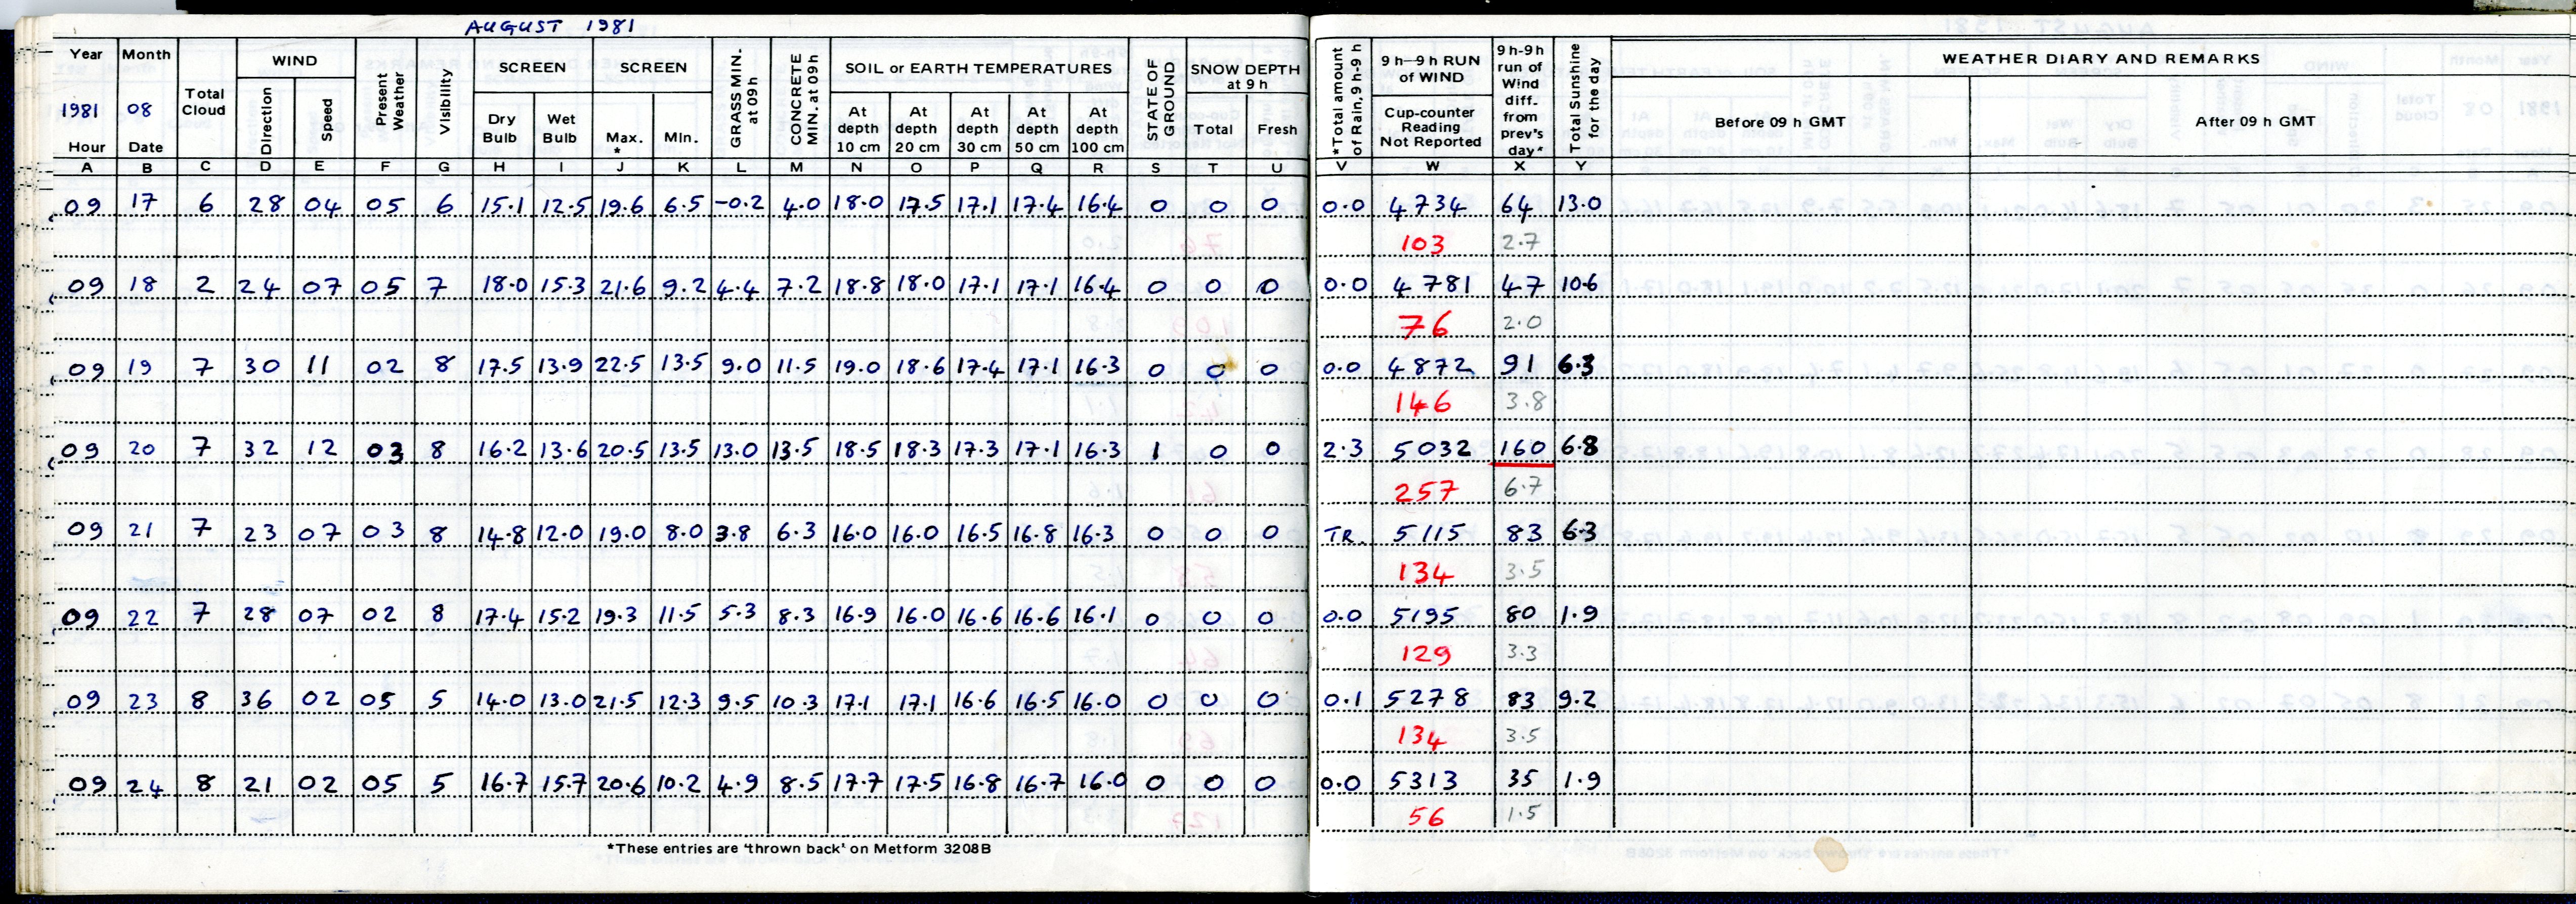 AUGUST 1981
Year Month Total Cloud WIND Present Weather Visibility SCREEN SCREEN GRASS MIN. at 09h CONCRETE MIN. at 09h SOIL or EARTH TEMPERATURES STATE OF GROUND SNOW DEPTH at 9 h *Total amount of Rain, 9h-9h 9 h—9 h RUN of WIND 9 h-9h run of Wind diff. from prev's day* Total Sunshine for the day WEATHER DIARY AND REMARKS
1981 08 Direction Speed Dry Bulb Wet Bulb Max. * Min. At depth 10 cm At depth 20 cm At depth 30 cm At depth 50 cm At depth 100 cm Total Fresh Cup-counter Reading Not Reported Before 09 h GMT After 09 h GMT
Hour Date
A B C D E F G H I J K L M N O P Q R S T U V W X Y
09 17 6 28 04 05 6 15.1 12.5 19.6 6.5 -0.2 4.0 18.0 17.5 17.1 17.4 16.4 0 0 0 0.0 4734 64 13.0
103 2.7
09 18 2 24 07 05 7 18.0 15.3 21.6 9.2 4.4 7.2 18.8 18.0 17.1 17.1 16.4 0 0 0 0.0 4781 47 10.6
76 2.0
09 19 7 30 11 02 8 17.5 13.9 22.5 13.5 9.0 11.5 19.0 18.6 17.4 17.1 16.3 0 0 0 0.0 4872 91 6.3
146 3.8
09 20 7 32 12 03 8 16.2 13.6 20.5 13.5 13.0 13.5 18.5 18.3 17.3 17.1 16.3 1 0 0 2.3 5032 160 6.8
257 6.7
09 21 7 23 07 03 8 14.8 12.0 19.0 8.0 3.8 6.3 16.0 16.0 16.5 16.8 16.3 0 0 0 TR. 5115 83 6.3
134 3.5
09 22 7 28 07 02 8 17.4 15.2 19.3 11.5 5.3 8.3 16.9 16.0 16.6 16.6 16.1 0 0 0 0.0 5195 80 1.9
129 3.3
09 23 8 36 02 05 5 14.0 13.0 21.5 12.3 9.5 10.3 17.1 17.1 16.6 16.5 16.0 0 0 0 0.1 5278 83 9.2
134 3.5
09 24 8 21 02 05 5 16.7 15.7 20.6 10.2 4.9 8.5 17.7 17.5 16.8 16.7 16.0 0 0 0 0.0 5313 35 1.9
56 1.5
*These entries are 'thrown back' on Metform 3208B